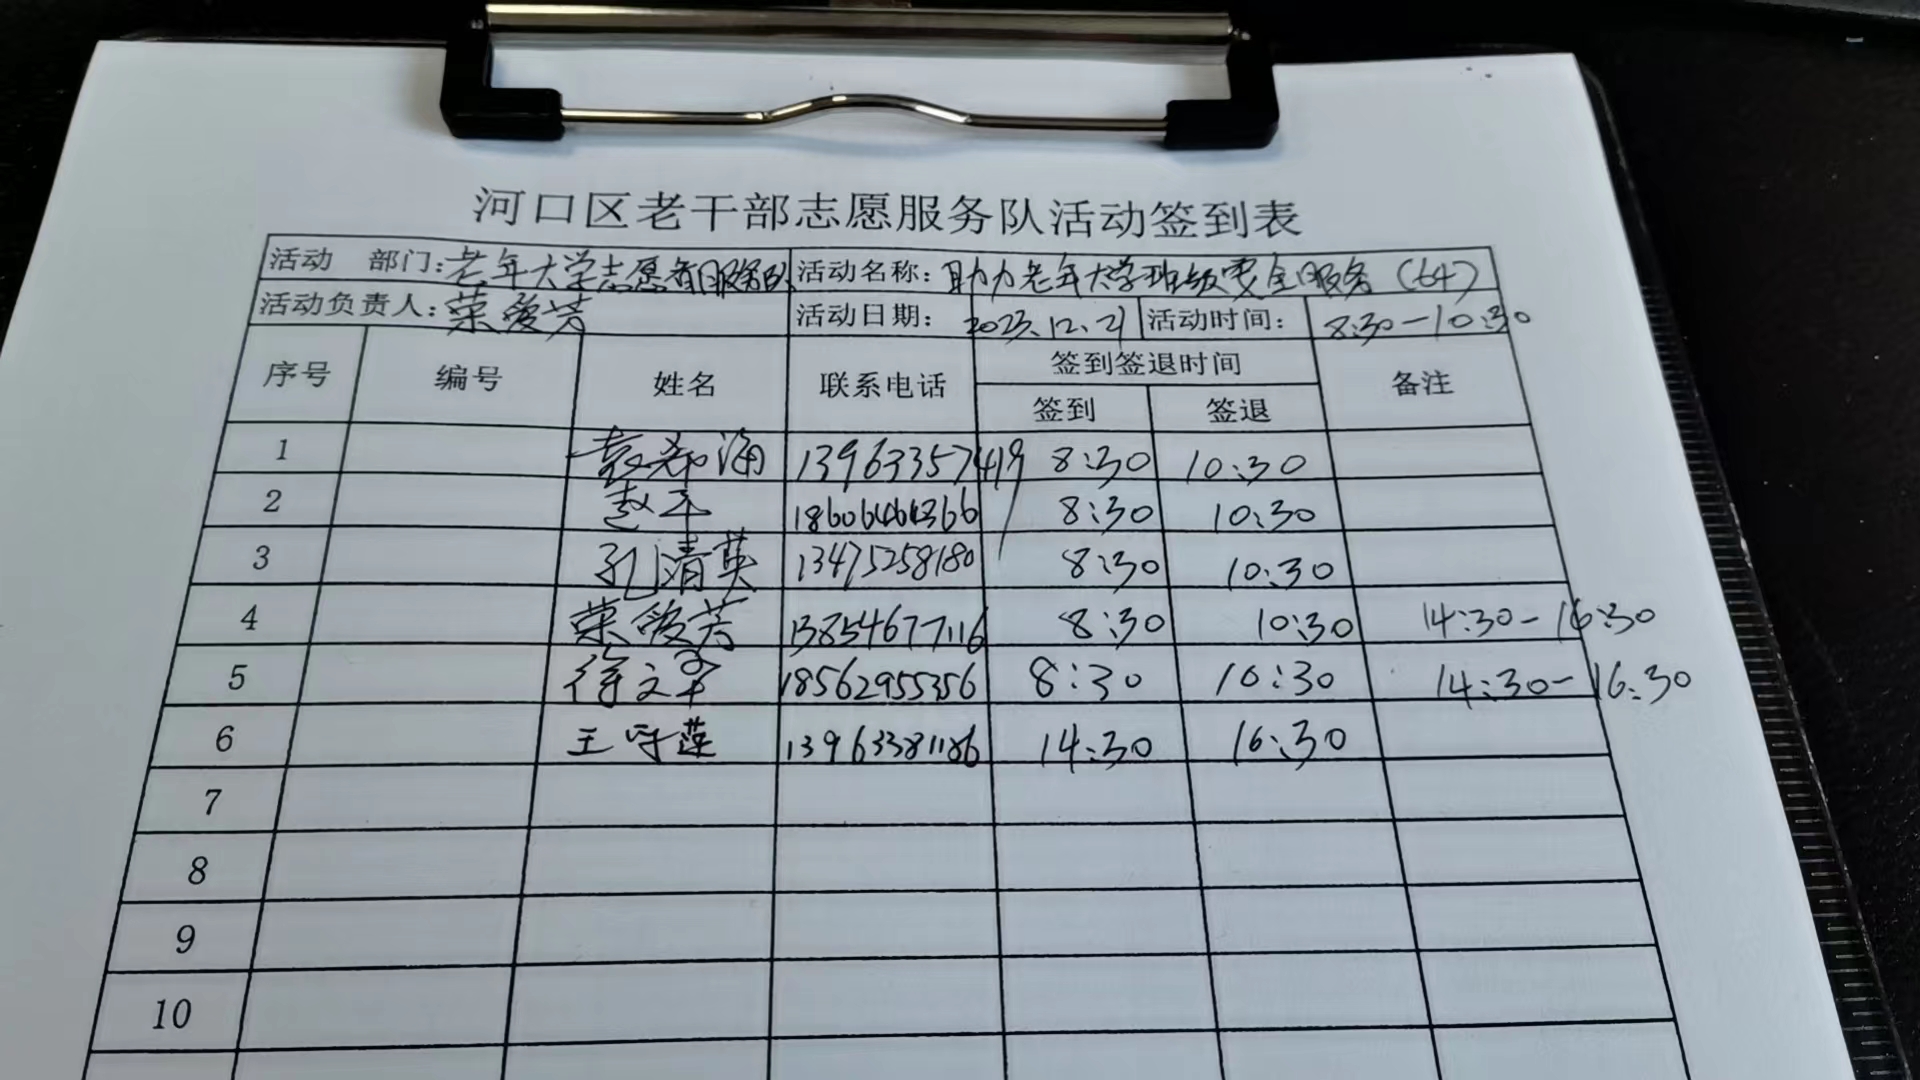 河口区老干部志愿服务队活动签到表
活动 部门：老年大学志愿者服务队 活动名称：助力老年大学班级安全服务（64）
活动负责人：荣爱芳 活动日期：2023.12.21 活动时间：8:30-10:30
序号 编号 姓名 联系电话 签到签退时间 备注
签到 签退
1 袁希海 13963357419 8:30 10:30
2 赵平 18606464366 8:30 10:30
3 孔清英 13475258180 8:30 10:30
4 荣爱芳 13854677116 8:30 10:30 14:30-16:30
5 徐文军 18562955356 8:30 10:30 14:30-16:30
6 王 莲 13963381186 14:30 16:30
7
8
9
10